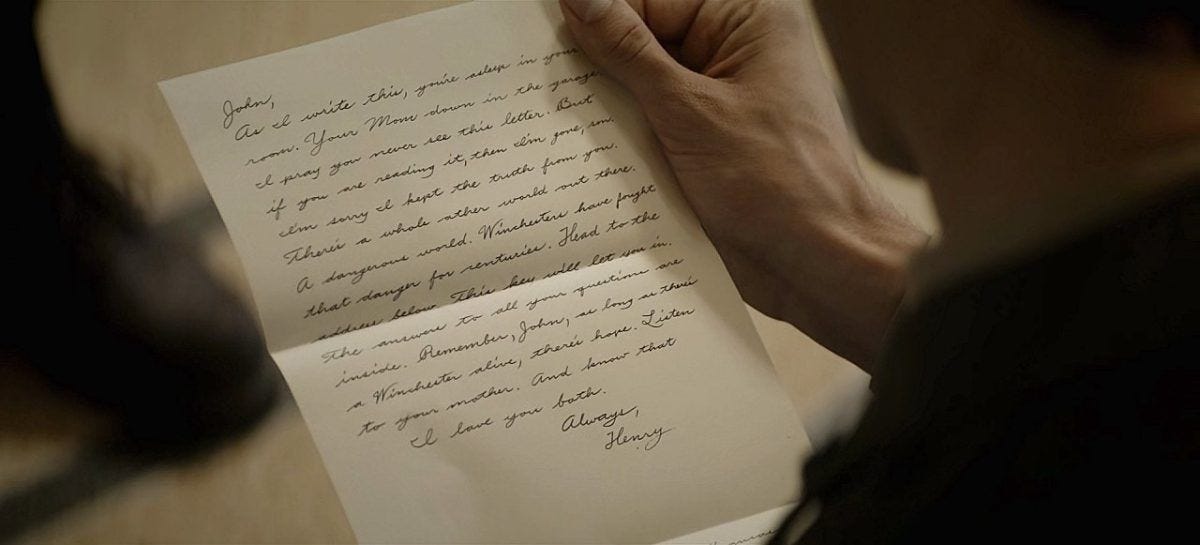 John,
As I write this, you're asleep in your
room. Your Mom down in the garage.
I pray you never see this letter. But
if you are reading it, then I'm gone, son.
I'm sorry I kept the truth from you.
There's a whole other world out there.
A dangerous world. Winchesters have fought
that danger for centuries. Head to the
address below. This key will let you in.
The answers to all your questions are
inside. Remember, John, as long as there's
a Winchester alive, there's hope. Listen
to your mother. And know that
I love you both.
Always,
Henry